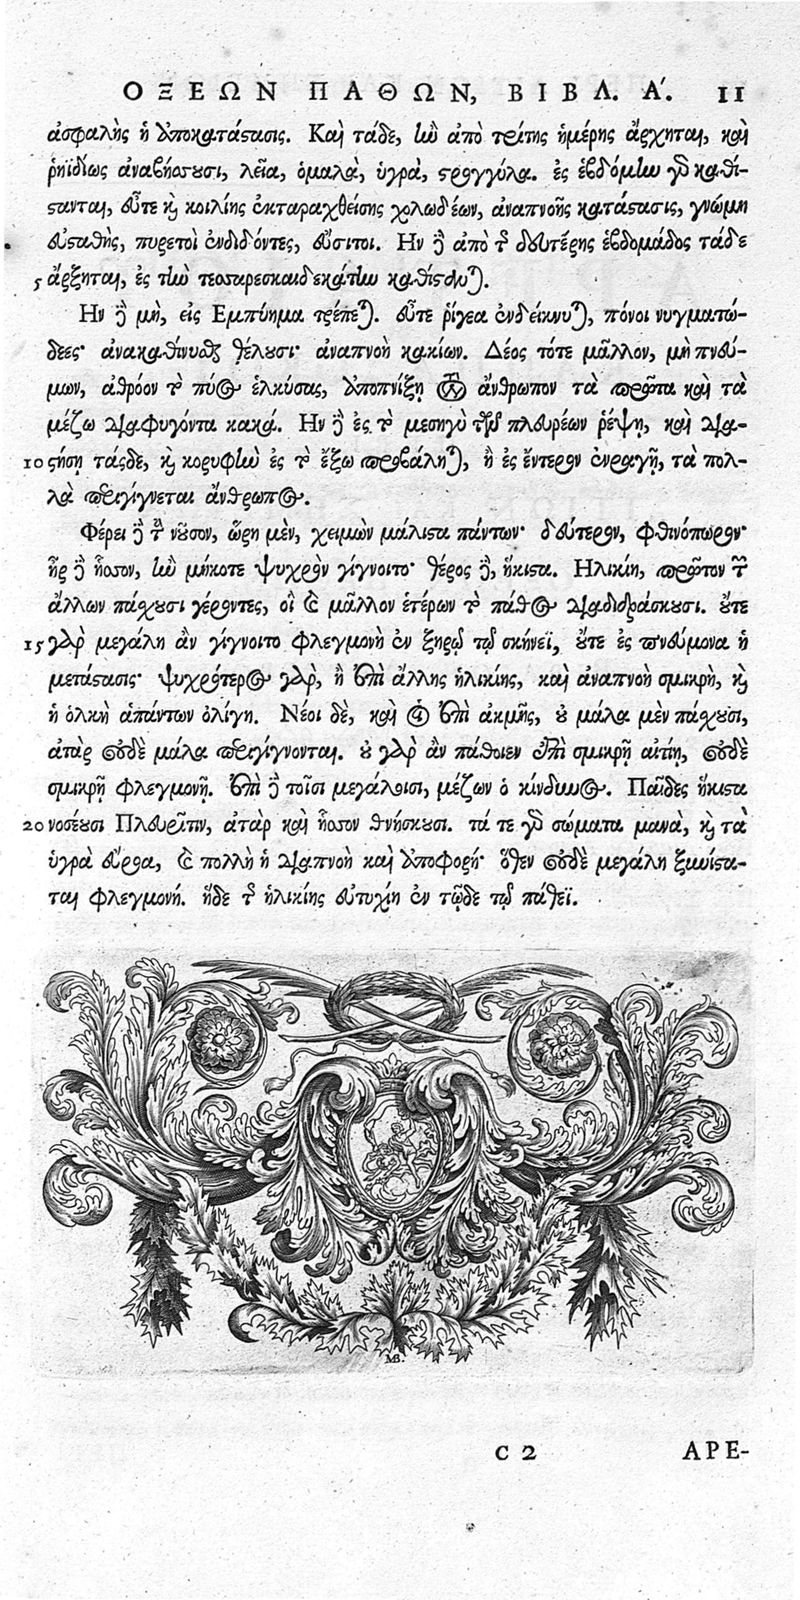 ΟΞΕΩΝ ΠΑΘΩΝ, ΒΙΒΛ. Α΄. 11
ἀσφαλὴς ἡ ἀποκατάστασις. Καὶ τάδε, ἢν ἀπὸ τρίτης ἡμέρης ἄρχηται, καὶ
ῥηϊδίως ἀναβήσσουσι, λεῖα, ὁμαλὰ, ὑγρὰ, στρογγύλα. ἐς ἑβδόμην γὰρ καθί-
στανται, εὖτε καὶ κοιλίης ἐκταραχθείσης χολωδέων, ἀναπνοῆς κατάστασις, γνώμη
εὐσταθὴς, πυρετοὶ ἐνδιδόντες, εὔσιτοι. Ην δὲ ἀπὸ τῆς δευτέρης ἑβδομάδος τάδε
5 ἄρξηται, ἐς τὴν τεσσαρεσκαιδεκάτην καθίσταται.
Ην δὲ μὴ, εἰς Εμπύημα τρέπεται. εὖτε ῥίγεα ἐνδείκνυται, πόνοι νυγματώ-
δεες· ἀνακαθίννυσθαι θέλουσι· ἀναπνοὴ κακίων. Δέος τότε μᾶλλον, μὴ πνεύ-
μων, ἀθρόον τὸ πύος ἑλκύσας, ἀποπνίξῃ τὸν ἄνθρωπον τὰ πρῶτα καὶ τὰ
μέζω διαφυγόντα κακά. Ην δὲ ἐς τὸ μεσηγὺ τῶν πλευρέων ῥέψῃ, καὶ δια-
10 στήσῃ τάσδε, καὶ κορυφὴν ἐς τὸ ἔξω προβάληται, ἢ ἐς ἔντερον ἐνραγῇ, τὰ πολ-
λὰ περιγίγνεται ἄνθρωπος.
Φέρει δὲ τὴν νοῦσον, ὥρη μὲν, χειμὼν μάλιστα πάντων· δεύτερον, φθινόπωρον·
ἦρ δὲ ἧσσον, ἢν μήκοτε ψυχρὸν γίγνοιτο· θέρος δὲ, ἥκιστα. Ηλικίη, πρῶτον τῶν
ἄλλων πάσχουσι γέροντες, οἱ καὶ μᾶλλον ἑτέρων τὸ πάθος διαδιδράσκουσι. οὔτε
15 γὰρ μεγάλη ἂν γίγνοιτο φλεγμονὴ ἐν ξηρῷ τῷ σκήνεϊ, οὔτε ἐς πνεύμονα ἡ
μετάστασις· ψυχρότερος γὰρ, ἢ ἐπὶ ἄλλης ἡλικίης, καὶ ἀναπνοὴ σμικρὴ, καὶ
ἡ ὁλκὴ ἁπάντων ὀλίγη. Νέοι δὲ, καὶ οἱ ἐπὶ ἀκμῆς, οὐ μάλα μὲν πάσχουσι,
ἀτὰρ οὐδὲ μάλα περιγίγνονται. οὐ γὰρ ἂν πάθοιεν ἐπὶ σμικρῇ αἰτίῃ, οὐδὲ
σμικρῇ φλεγμονῇ. ἐπὶ δὲ τοῖσι μεγάλοισι, μέζων ὁ κίνδυνος. Παῖδες ἥκιστα
20 νοσέουσι Πλευρῖτιν, ἀτὰρ καὶ ἧσσον θνήσκουσι. τά τε γὰρ σώματα μανὰ, καὶ τὰ
ὑγρὰ εὔροα, καὶ πολλὴ ἡ διαπνοὴ καὶ ἀποφορή· ὅθεν οὐδὲ μεγάλη ξυνίστα-
ται φλεγμονή. ἥδε τῆς ἡλικίης εὐτυχίη ἐν τῷδε τῷ πάθεϊ.
MB.
C 2 ΑΡΕ-